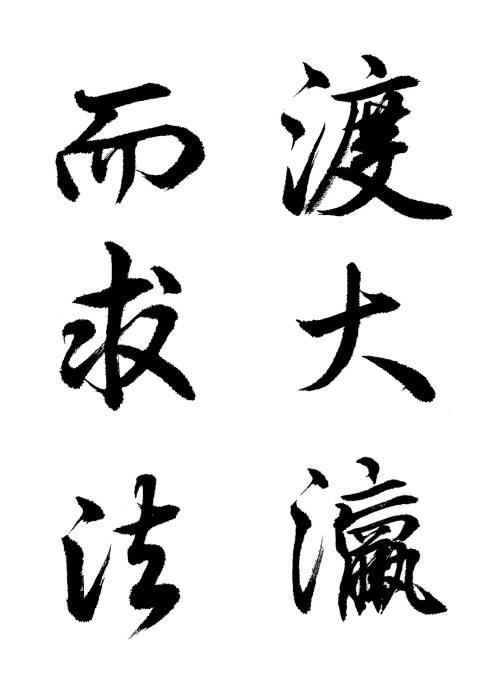 渡大瀛
而求法